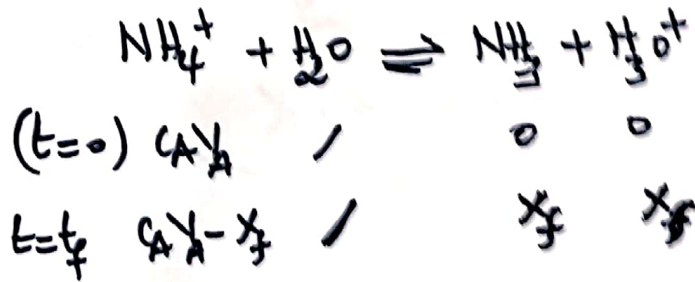 NH₄⁺ + H₂O ⇌ NH₃ + H₃O⁺
(t=0) C_A V_A / 0 0
t=t_f C_A V_A - x_f / x_f x_f